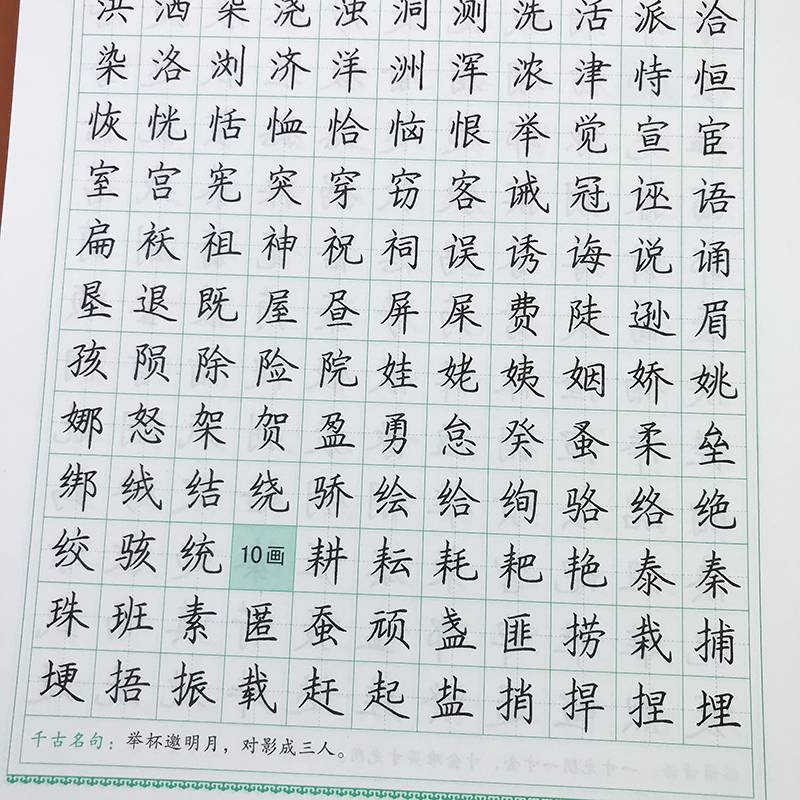 洪洒柒浇浊洞测洗活派洽
染洛浏济洋洲浑浓津恃恒
恢恍恬恤恰恼恨举觉宣宦
室宫宪突穿窃客诫冠诬语
扁袄祖神祝祠误诱诲说诵
垦退既屋昼屏屎费陡逊眉
孩陨除险院娃姥姨姻娇姚
娜怒架贺盈勇怠癸蚤柔垒
绑绒结绕骄绘给绚骆络绝
绞骇统10画耕耘耗耙艳泰秦
珠班素匿蚕顽盏匪捞栽捕
埂捂振载赶起盐捎捍捏埋
千古名句：举杯邀明月，对影成三人。